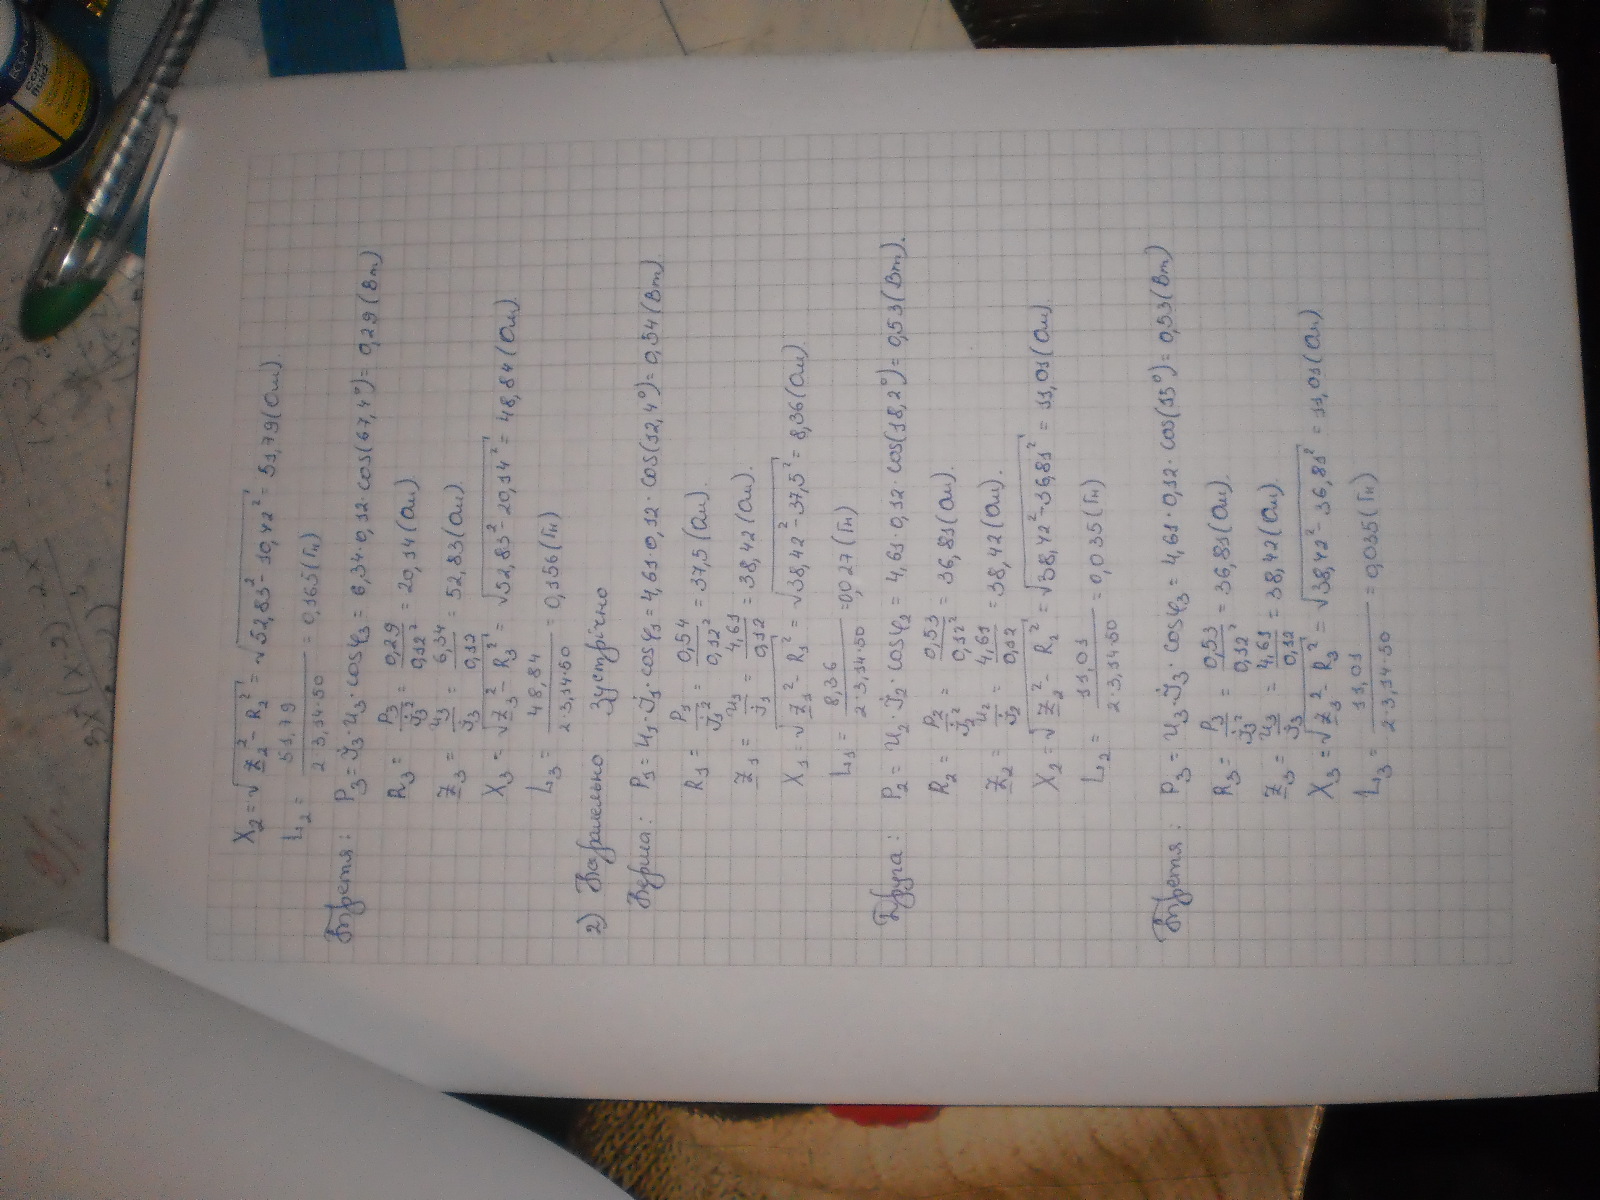 X₂ = √(Z₂² - R₂²) = √(52,83² - 10,42²) = 51,79 (Ом).
L₂ = 51,79 / 2·3,14·50 = 0,165 (Гн)
Третя: P₃ = U₃·I₃·cosφ₃ = 6,34·0,12·cos(67,4°) = 0,29 (Вт)
R₃ = P₃/I₃² = 0,29/0,12² = 20,14 (Ом)
Z₃ = U₃/I₃ = 6,34/0,12 = 52,83 (Ом)
X₃ = √(Z₃² - R₃²) = √(52,83² - 20,14²) = 48,84 (Ом).
L₃ = 48,84 / 2·3,14·50 = 0,156 (Гн)
2) Паралельно зустрічно
Перша: P₁ = U₁·I₁·cosφ₁ = 4,61·0,12·cos(12,4°) = 0,54 (Вт)
R₁ = P₁/I₁² = 0,54/0,12² = 37,5 (Ом).
Z₁ = U₁/I₁ = 4,61/0,12 = 38,42 (Ом).
X₁ = √(Z₁² - R₁²) = √(38,42² - 37,5²) = 8,36 (Ом)
L₁ = 8,36 / 2·3,14·50 = 0,027 (Гн)
Друга: P₂ = U₂·I₂·cosφ₂ = 4,61·0,12·cos(18,2°) = 0,53 (Вт).
R₂ = P₂/I₂² = 0,53/0,12² = 36,81 (Ом).
Z₂ = U₂/I₂ = 4,61/0,12 = 38,42 (Ом).
X₂ = √(Z₂² - R₂²) = √(38,42² - 36,81²) = 11,01 (Ом)
L₂ = 11,01 / 2·3,14·50 = 0,035 (Гн)
Третя: P₃ = U₃·I₃·cosφ₃ = 4,61·0,12·cos(15°) = 0,53 (Вт)
R₃ = P₃/I₃² = 0,53/0,12² = 36,81 (Ом).
Z₃ = U₃/I₃ = 4,61/0,12 = 38,42 (Ом).
X₃ = √(Z₃² - R₃²) = √(38,42² - 36,81²) = 11,01 (Ом)
L₃ = 11,01 / 2·3,14·50 = 0,035 (Гн)